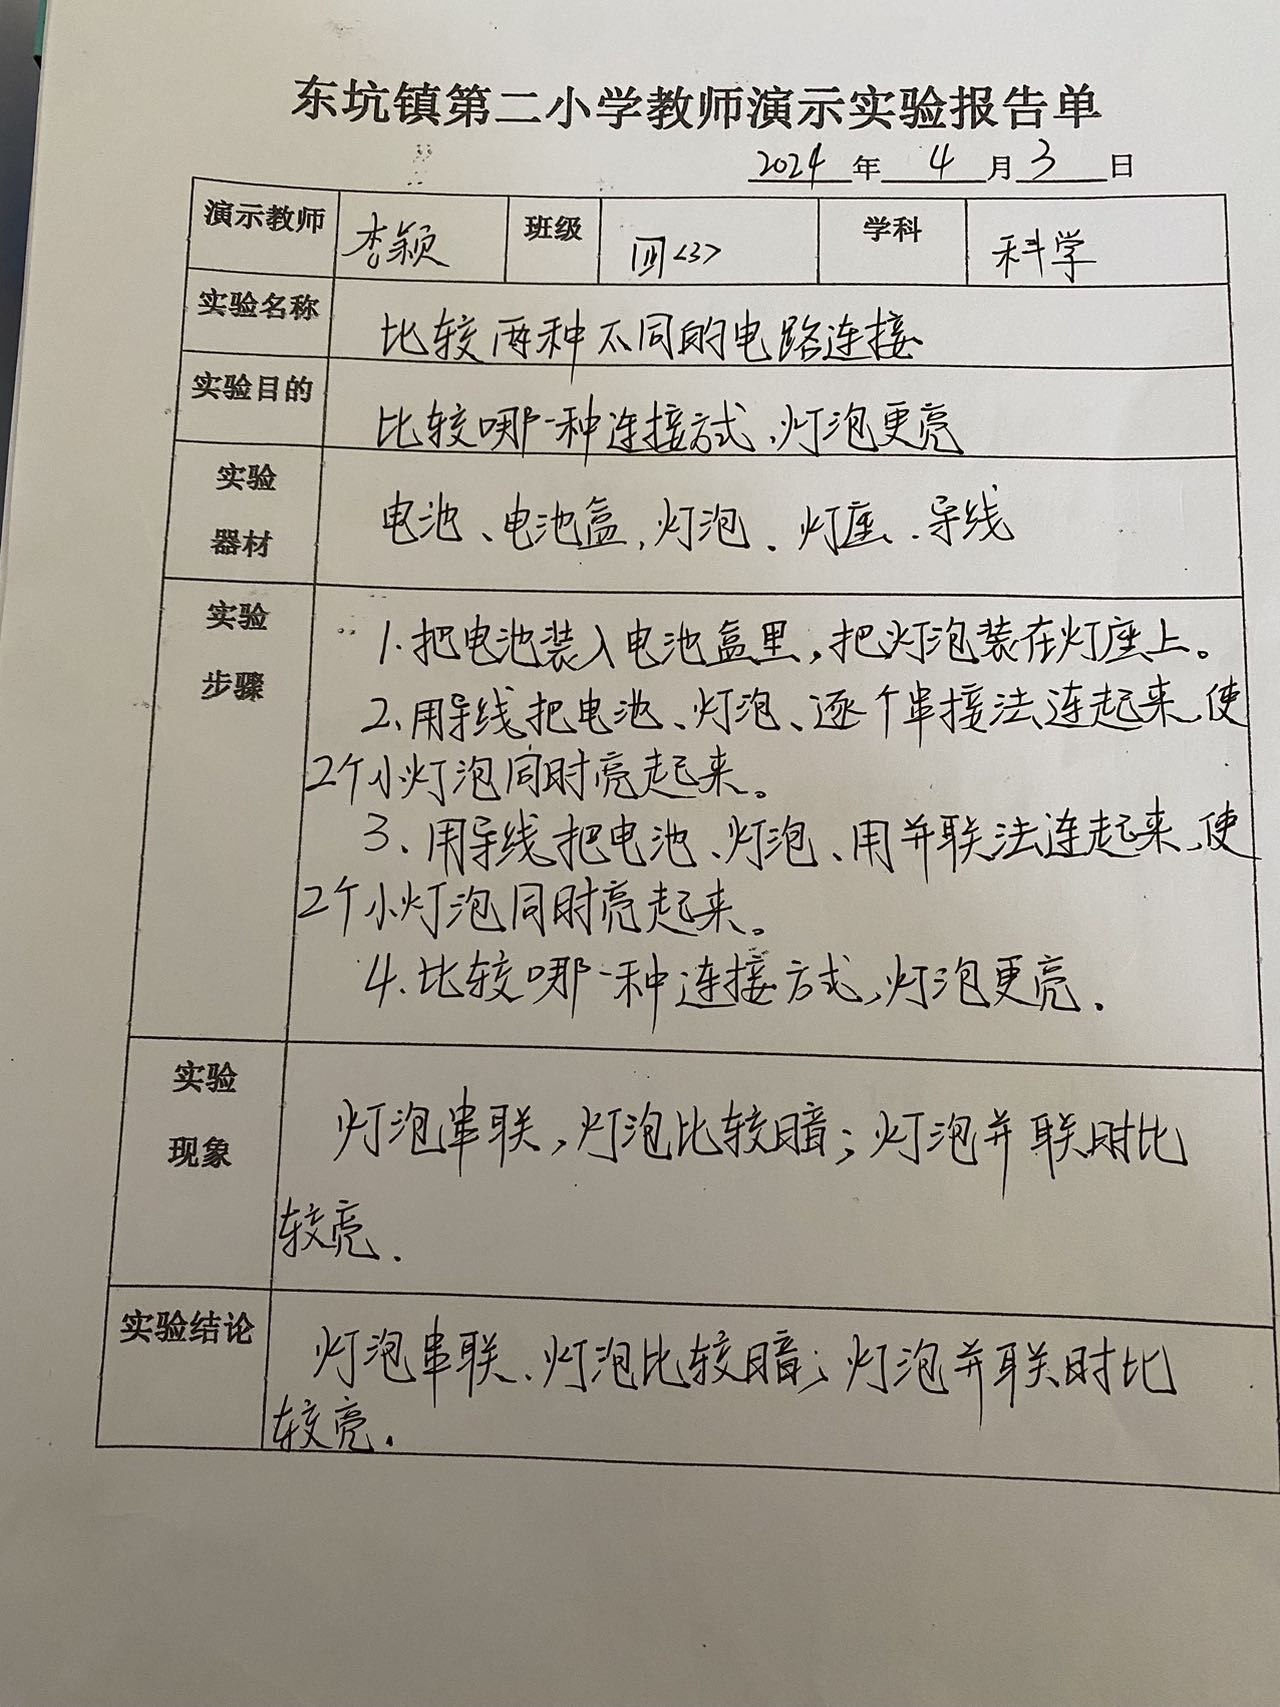 东坑镇第二小学教师演示实验报告单
2024年4月3日
演示教师 李颖 班级 四<3> 学科 科学
实验名称 比较两种不同的电路连接
实验目的 比较哪一种连接方式、灯泡更亮
实验
器材
电池、电池盒,灯泡、灯座、导线
实验
步骤
1.把电池装入电池盒里,把灯泡装在灯座上。
2、用导线把电池、灯泡、逐个串接法连起来,使
2个小灯泡同时亮起来。
3、用导线把电池、灯泡、用并联法连起来,使
2个小灯泡同时亮起来。
4.比较哪一种连接方式,灯泡更亮.
实验
现象
灯泡串联,灯泡比较暗;灯泡并联时比
较亮.
实验结论
灯泡串联、灯泡比较暗;灯泡并联时比
较亮.